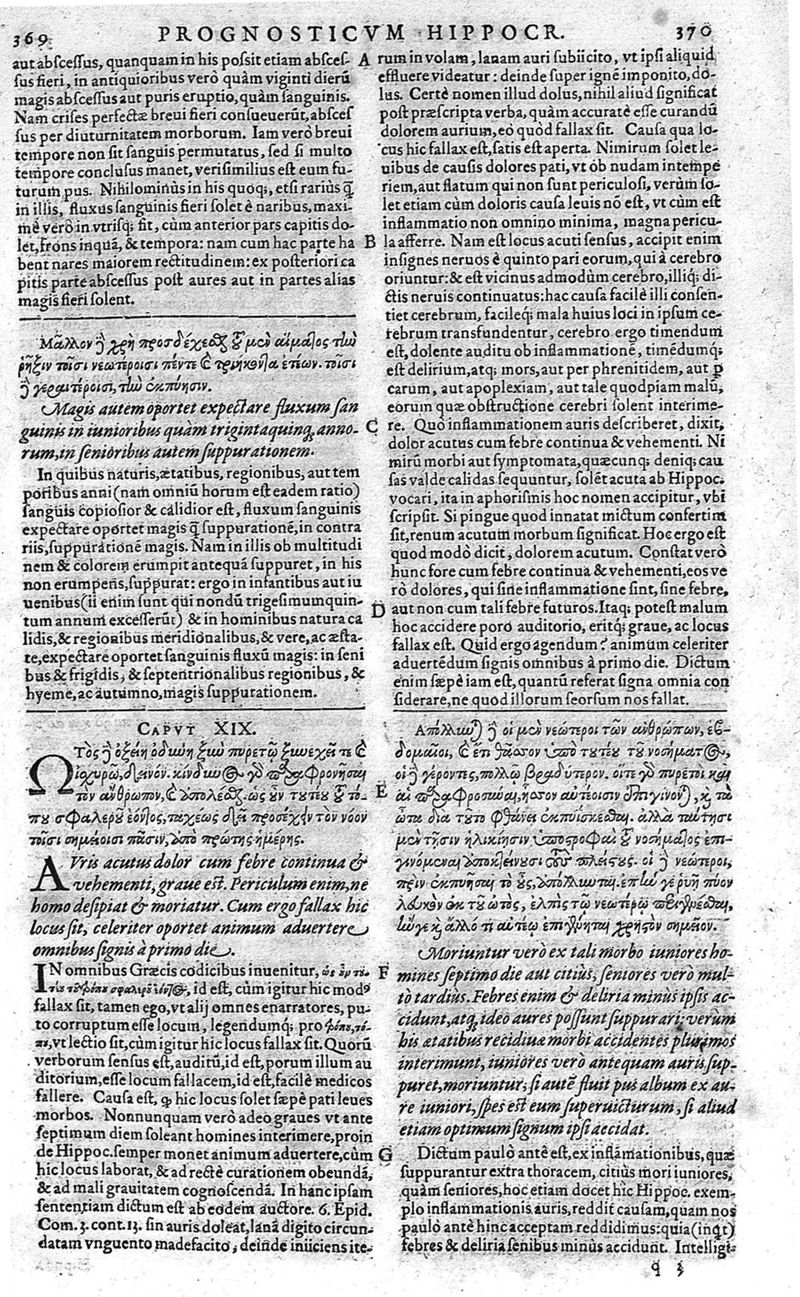 369 PROGNOSTICVM HIPPOCR. 370
aut abscessus, quanquam in his possit etiam absces-
sus fieri, in antiquioribus verò quàm viginti dierũ
magis abscessus aut puris eruptio, quàm sanguinis.
Nam crises perfectæ breui fieri consueuerũt, absces
sus per diuturnitatem morborum. Iam verò breui
tempore non fit sanguis permutatus, sed si multo
tempore conclusus manet, verisimilius est eum fu-
turum pus. Nihilominùs in his quoq;, etsi rarius q̃
in illis, fluxus sanguinis fieri solet è naribus, maxi-
mè verò in vtrisq; fit, cùm anterior pars capitis do-
let, frons inquã, & tempora: nam cum hac parte ha
bent nares maiorem rectitudinem: ex posteriori ca
pitis parte abscessus post aures aut in partes alias
magis fieri solent.
Μᾶλλον ἢ χρὴ προσδέχεσθαι τοῦ μὲν αἵματος τὴν
ῥῆξιν τοῖσι νεωτέροισι πέντε καὶ τριήκοντα ἐτέων. τοῖσι
δὲ γεραιτέροισι, τὴν ἐκπύησιν.
Magis autem oportet expectare fluxum san
guinis in iunioribus quàm trigintaquinq; anno-
rum, in senioribus autem suppurationem.
In quibus naturis, ætatibus, regionibus, aut tem
poribus anni (nam omniũ horum est eadem ratio)
sanguis copiosior & calidior est, fluxum sanguinis
expectare oportet magis q̃ suppurationẽ, in contra
riis, suppurationẽ magis. Nam in illis ob multitudi
nem & colorem erumpit antequã suppuret, in his
non erumpens, suppurat: ergo in infantibus aut iu
uenibus (ii enim sunt qui nondũ trigesimumquin-
tum annum excesserũt) & in hominibus natura ca
lidis, & regionibus meridionalibus, & vere, ac æsta-
te, expectare oportet sanguinis fluxũ magis: in seni
bus & frigidis, & septentrionalibus regionibus, &
hyeme, ac autumno, magis suppurationem.
CAPVT XIX.
Ὠτὸς δὲ ὀξείη ὀδύνη ξὺν πυρετῷ ξυνεχεῖ τε καὶ
ἰσχυρῷ, δεινόν. κίνδυνος γὰρ παραφρονῆσαι
τὸν ἄνθρωπον, καὶ ἀπολέσθαι. ὡς οὖν τούτου τοῦ τό-
που σφαλεροῦ ἐόντος, ταχέως δεῖ προσέχειν τὸν νόον
τοῖσι σημείοισι πᾶσιν, ἀπὸ πρώτης ἡμέρης.
AVris acutus dolor cum febre continua &
vehementi, graue est. Periculum enim, ne
homo desipiat & moriatur. Cum ergo fallax hic
locus sit, celeriter oportet animum aduertere
omnibus signis à primo die.
IN omnibus Græcis codicibus inuenitur,
id est, cùm igitur hic modꝰ
fallax sit, tamen ego, vt alij omnes enarratores, pu-
to corruptum esse locum, legendumq; pro
vt lectio sit, cùm igitur hic locus fallax sit. Quorũ
verborum sensus est, auditũ, id est, porum illum au
ditorium, esse locum fallacem, id est, facilè medicos
fallere. Causa est, ꝙ hic locus solet sæpè pati leues
morbos. Nonnunquam verò adeo graues vt ante
septimum diem soleant homines interimere, proin
de Hippoc. semper monet animum aduertere, cùm
hic locus laborat, & ad rectè curationem obeundã,
& ad mali grauitatem cognoscendã. In hanc ipsam
sententiam dictum est ab eodem auctore. 6. Epid.
Com. 3. cont. 13. sin auris doleat, lanã digito circun-
datam vnguento madefacito, deinde iniiciens ite-
A rum in volam, lanam auri subiicito, vt ipsi aliquid
effluere videatur: deinde super ignẽ imponito, do-
lus. Certè nomen illud dolus, nihil aliud significat
post præscripta verba, quàm accuratè esse curandũ
dolorem aurium, eò quòd fallax sit. Causa qua lo-
cus hic fallax est, satis est aperta. Nimirum solet le-
uibus de causis dolores pati, vt ob nudam intempe
riem, aut flatum qui non sunt periculosi, verùm so-
let etiam cùm doloris causa leuis nõ est, vt cùm est
inflammatio non omnino minima, magna pericu-
B la afferre. Nam est locus acuti sensus, accipit enim
insignes neruos è quinto pari eorum, qui à cerebro
oriuntur: & est vicinus admodùm cerebro, illiq; di-
ctis neruis continuatus: hac causa facilè illi consen-
tiet cerebrum, facileq; mala huius loci in ipsum ce-
rebrum transfundentur, cerebro ergo timendum
est, dolente auditu ob inflammationẽ, timẽdumq;
est delirium, atq; mors, aut per phrenitidem, aut ꝑ
carum, aut apoplexiam, aut tale quodpiam malũ,
eorum quæ obstructione cerebri solent interime-
C re. Quò inflammationem auris describeret, dixit,
dolor acutus cum febre continua & vehementi. Ni
mirũ morbi aut symptomata, quæcunq; deniq; cau
sas valde calidas sequuntur, solẽt acuta ab Hippoc.
vocari, ita in aphorismis hoc nomen accipitur, vbi
scripsit. Si pingue quod innatat mictum confertim
sit, renum acutum morbum significat. Hoc ergo est
quod modò dicit, dolorem acutum. Constat verò
hunc fore cum febre continua & vehementi, eos ve
rò dolores, qui sine inflammatione sint, sine febre,
D aut non cum tali febre futuros. Itaq; potest malum
hoc accidere poro auditorio, eritq; graue, ac locus
fallax est. Quid ergo agendum? animum celeriter
aduertẽdum signis omnibus à primo die. Dictum
enim sæpè iam est, quantũ referat signa omnia con
siderare, ne quod illorum seorsum nos fallat.
Ἀπόλλυνται δὲ οἱ μὲν νεώτεροι τῶν ἀνθρώπων, ἑβ-
δομαῖοι, καὶ ἔτι θᾶσσον ὑπὸ τούτου τοῦ νοσήματος,
οἱ δὲ γέροντες, πολλῷ βραδύτερον. οἵτε γὰρ πυρετοὶ καὶ
E αἱ παραφροσύναι, ἧσσον αὐτέοισιν ἐπιγίνονται, καὶ τὰ
ὦτα διὰ τοῦτο φθάνει ἐκπυΐσκεσθαι. ἀλλὰ ταύτησι
μὲν τῇσιν ἡλικίῃσιν ὑποστροφαὶ τοῦ νοσήματος ἐπι-
γινόμεναι ἀποκτείνουσι τοὺς πλείστους. οἱ δὲ νεώτεροι,
πρὶν ἐκπυῆσαι τὸ οὖς, ἀπόλλυνται. ἐπὴν δὲ ῥυῇ πύον
λευκὸν ἐκ τοῦ ὠτὸς, ἐλπὶς τῷ νεωτέρῳ περιγενέσθαι,
ἤν γε καὶ ἄλλο τι αὐτέῳ ἐπιγένηται χρηστὸν σημεῖον.
Moriuntur verò ex tali morbo iuniores ho-
F mines septimo die aut citiùs, seniores verò mul-
tò tardiùs. Febres enim & deliria minùs ipsis ac-
cidunt, atq; ideo aures possunt suppurari: verùm
his ætatibus recidiuæ morbi accidentes plurimos
interimunt, iuniores verò antequam auris sup-
puret, moriuntur, si autẽ fluit pus album ex au-
re iuniori, spes est eum superuicturum, si aliud
etiam optimum signum ipsi accidat.
G Dictum paulò antè est, ex inflãmationibus, quæ
suppurantur extra thoracem, citiùs mori iuniores,
quàm seniores, hoc etiam docet hîc Hippoc. exem-
plo inflammationis auris, reddit causam, quam nos
paulò antè hinc acceptam reddidimus: quia (inq̃t)
febres & deliria senibus minùs accidunt. Intelligi-
q 3